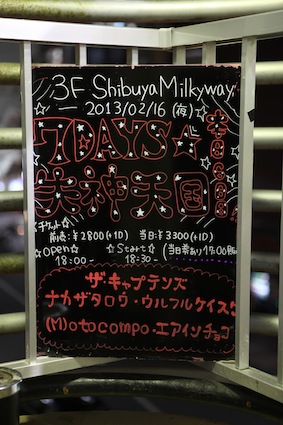 3F Shibuya Milkyway
2013/02/16 (夜)
7DAYS☆
楽神天国
☆チケット☆
前売:¥2800(+1D) 当日:¥3300(+1D)
☆open☆ ☆Start☆
18:00〜 18:30〜
ザ・キャプテンズ
ナカザタロウ・ウルフルケイスケ
(M)otocompo・エアインチョコ